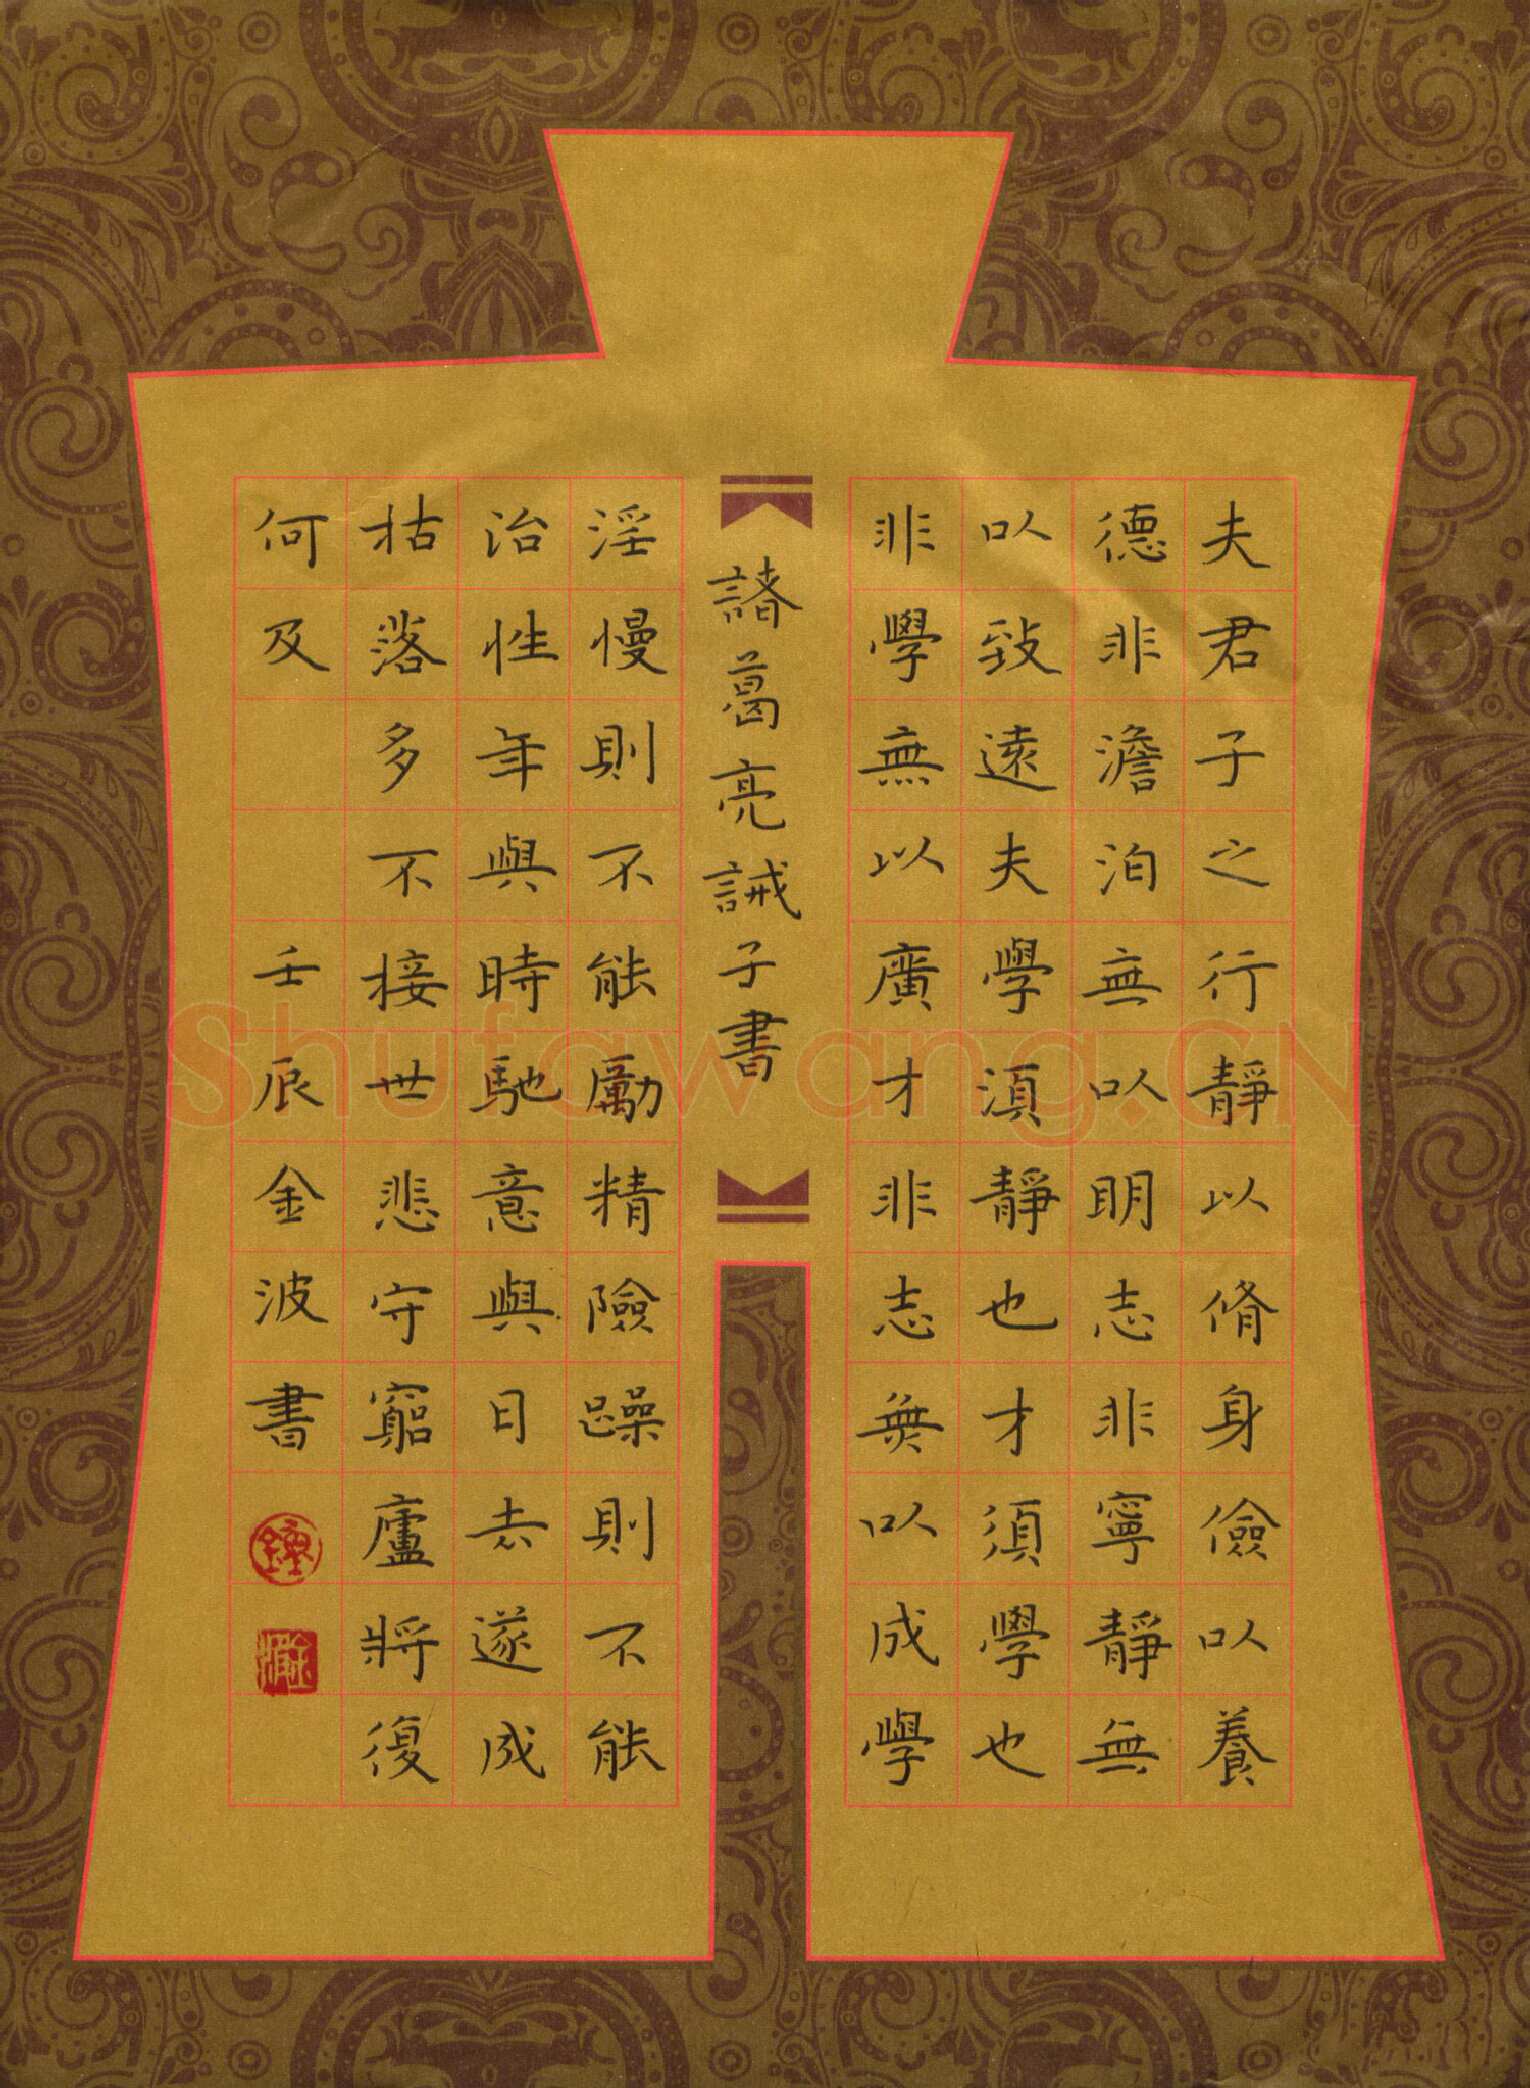 夫君子之行靜以脩身儉以養
德非澹泊無以明志非寧靜無
以致遠夫學須靜也才須學也
非學無以廣才非志無以成學
諸葛亮誡子書
淫慢則不能勵精險躁則不能
治性年與時馳意與日去遂成
枯落多不接世悲守窮廬將復
何及
壬辰金波書
Shufawang.CN